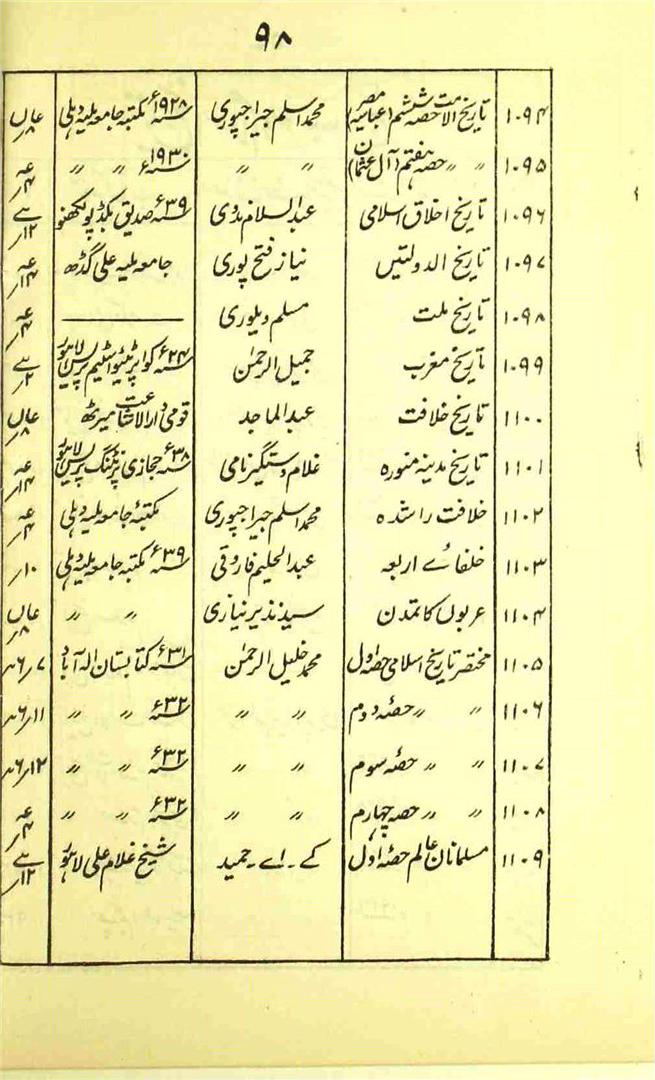 ۹۸
۱۰۹۴ تاریخ الامت حصہ ششم (عباسیہ مصر) محمد اسلم جیراجپوری سنہ ۱۹۲۸ء مکتبہ جامعہ ملیہ دہلی
۱۰۹۵ 〃 〃 حصہ ہفتم (آل عثمان) 〃 〃 سنہ ۱۹۳۰ء 〃 〃
۱۰۹۶ تاریخ اخلاق اسلامی عبدالسلام ندوی سنہ ۳۹ء صدیق بکڈپو لکھنؤ ۱۲/
۱۰۹۷ تاریخ الدولتیں نیاز فتح پوری جامعہ ملیہ علی گڈھ
۱۰۹۸ تاریخ ملت مسلم ویلوری
۱۰۹۹ تاریخ مغرب جمیل الرحمٰن سنہ ۲۴ء کواپریٹیو اسٹیم پریس لاہور
۱۱۰۰ تاریخ خلافت عبدالماجد قومی دارالاشاعت میرٹھ
۱۱۰۱ تاریخ مدینہ منورہ غلام دستگیر نامی سنہ ۳۸ء حجازی پرنٹنگ پریس لاہور
۱۱۰۲ خلافت راشدہ محمد اسلم جیراجپوری مکتبۂ جامعہ ملیہ دہلی
۱۱۰۳ خلفائے اربعہ عبدالحلیم فاروقی سنہ ۳۹ء مکتبہ جامعہ ملیہ دہلی ۱۰/
۱۱۰۴ عربوں کا تمدن سید نذیر نیازی 〃 〃
۱۱۰۵ مختصر تاریخ اسلامی حصہ اول محمد خلیل الرحمٰن سنہ ۳۱ء کتابستان الہ آباد ۷/۶
۱۱۰۶ 〃 〃 حصۂ دوم 〃 〃 سنہ ۳۲ء 〃 〃 ۱۱/۶
۱۱۰۷ 〃 〃 حصۂ سوم 〃 〃 سنہ ۳۲ء 〃 〃 ۱۲/۶
۱۱۰۸ 〃 〃 حصہ چہارم 〃 〃 سنہ ۳۲ء 〃 〃
۱۱۰۹ مسلمانان عالم حصۂ اول کے۔ اے۔ حمید شیخ غلام علی لاہور ۱۲/